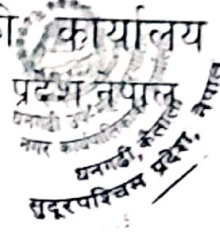 कार्यालय
प्रदेश, नेपाल
धनगढी उप-
नगर कार्यपालिका
धनगढी, कैलाली
सुदूरपश्चिम प्रदेश, नेपाल